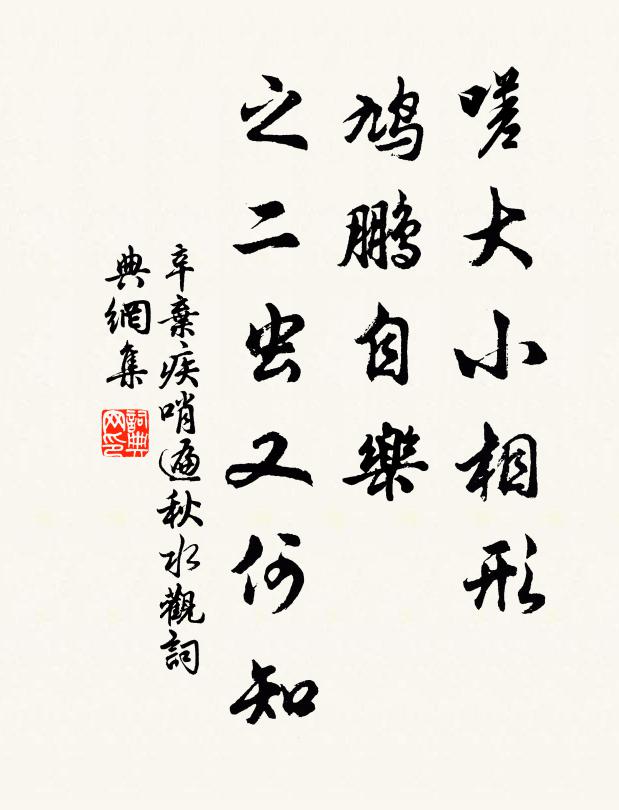 嗟大小相形
鳩鵬自樂
之二虫又何知
辛棄疾哨遍秋水觀詞
典網集
詞典网印